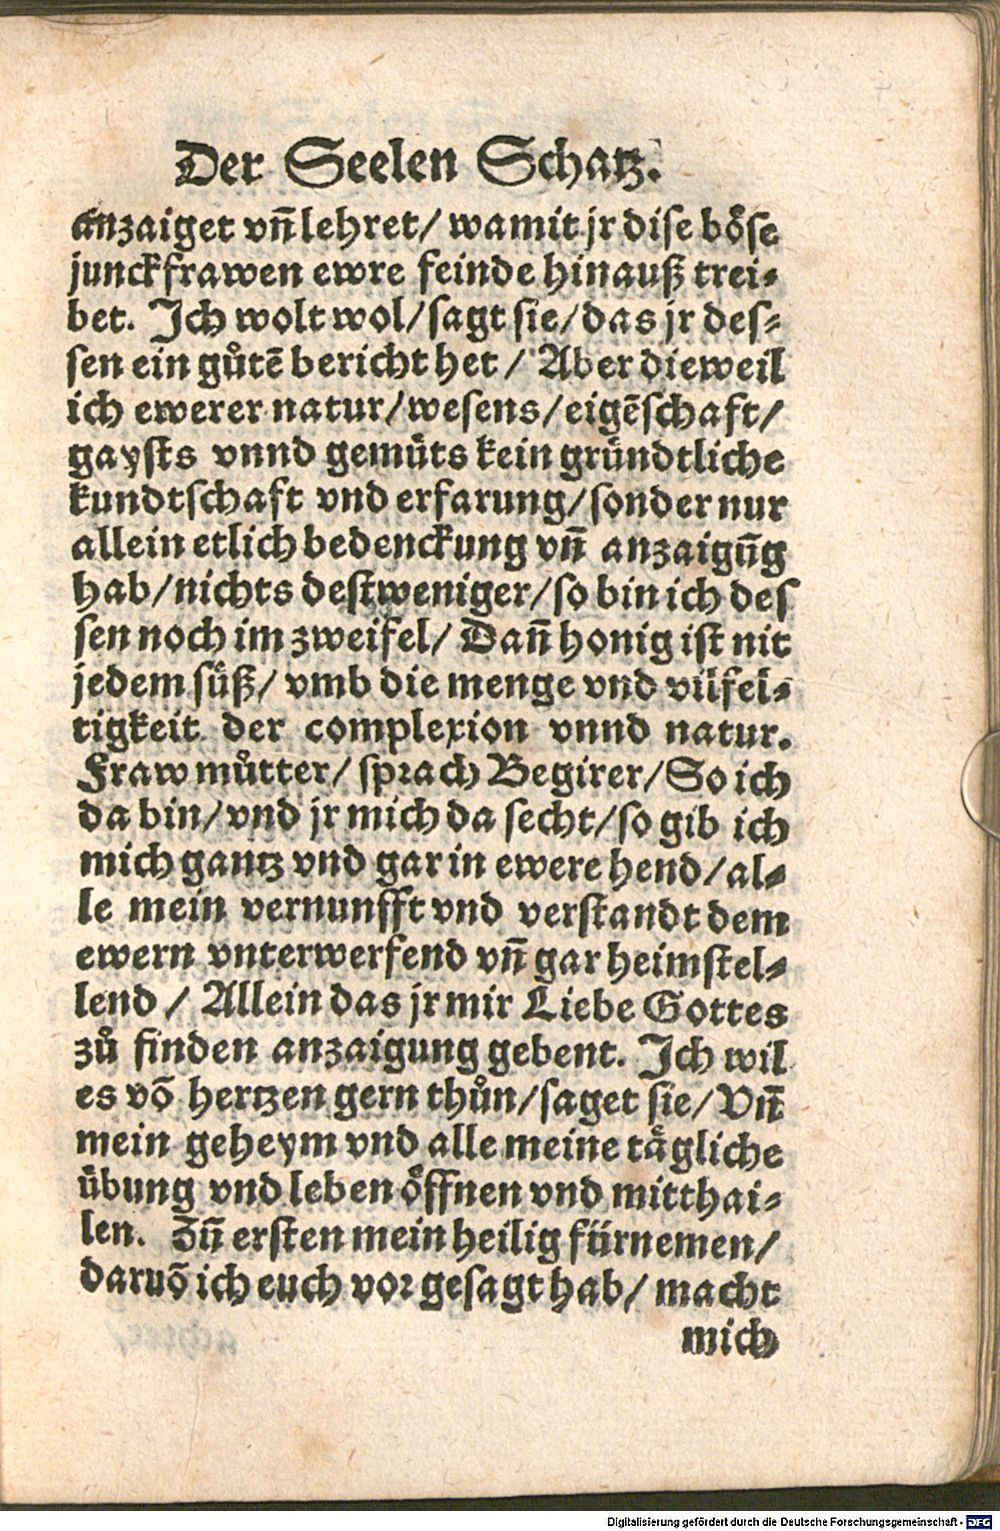 Der Seelen Schatz.
anzaiget vñ lehret/ wamit jr dise boͤse
junckfrawen ewre feinde hinauß trei⸗
bet. Ich wolt wol/sagt sie/das jr des⸗
sen ein guͦtē bericht het / Aber dieweil
ich ewerer natur/wesens/eigēschaft/
gaysts vnnd gemuͤts kein gruͤndtliche
kundtschaft vnd erfarung/sonder nur
allein etlich bedenckung vñ anzaigūg
hab/nichts destweniger/so bin ich des
sen noch im zweifel/ Dañ honig ist nit
jedem suͤß/ vmb die menge vnd vilfel⸗
tigkeit der complexion vnnd natur.
Fraw muͦtter/ sprach Begirer/So ich
da bin/vnd jr mich da secht/so gib ich
mich gantz vnd gar in ewere hend/al⸗
le mein vernunfft vnd verstandt dem
ewern vnterwerfend vñ gar heimstel⸗
lend / Allein das jr mir Liebe Gottes
zuͦ finden anzaigung gebent. Ich wil
es vō hertzen gern thuͦn/saget sie/Vñ
mein geheym vnd alle meine taͤgliche
uͤbung vnd leben oͤffnen vnd mitthai⸗
len. Zū ersten mein heilig fürnemen/
daruō ich euch vor gesagt hab/ macht
mich
Digitalisierung gefördert durch die Deutsche Forschungsgemeinschaft - DFG